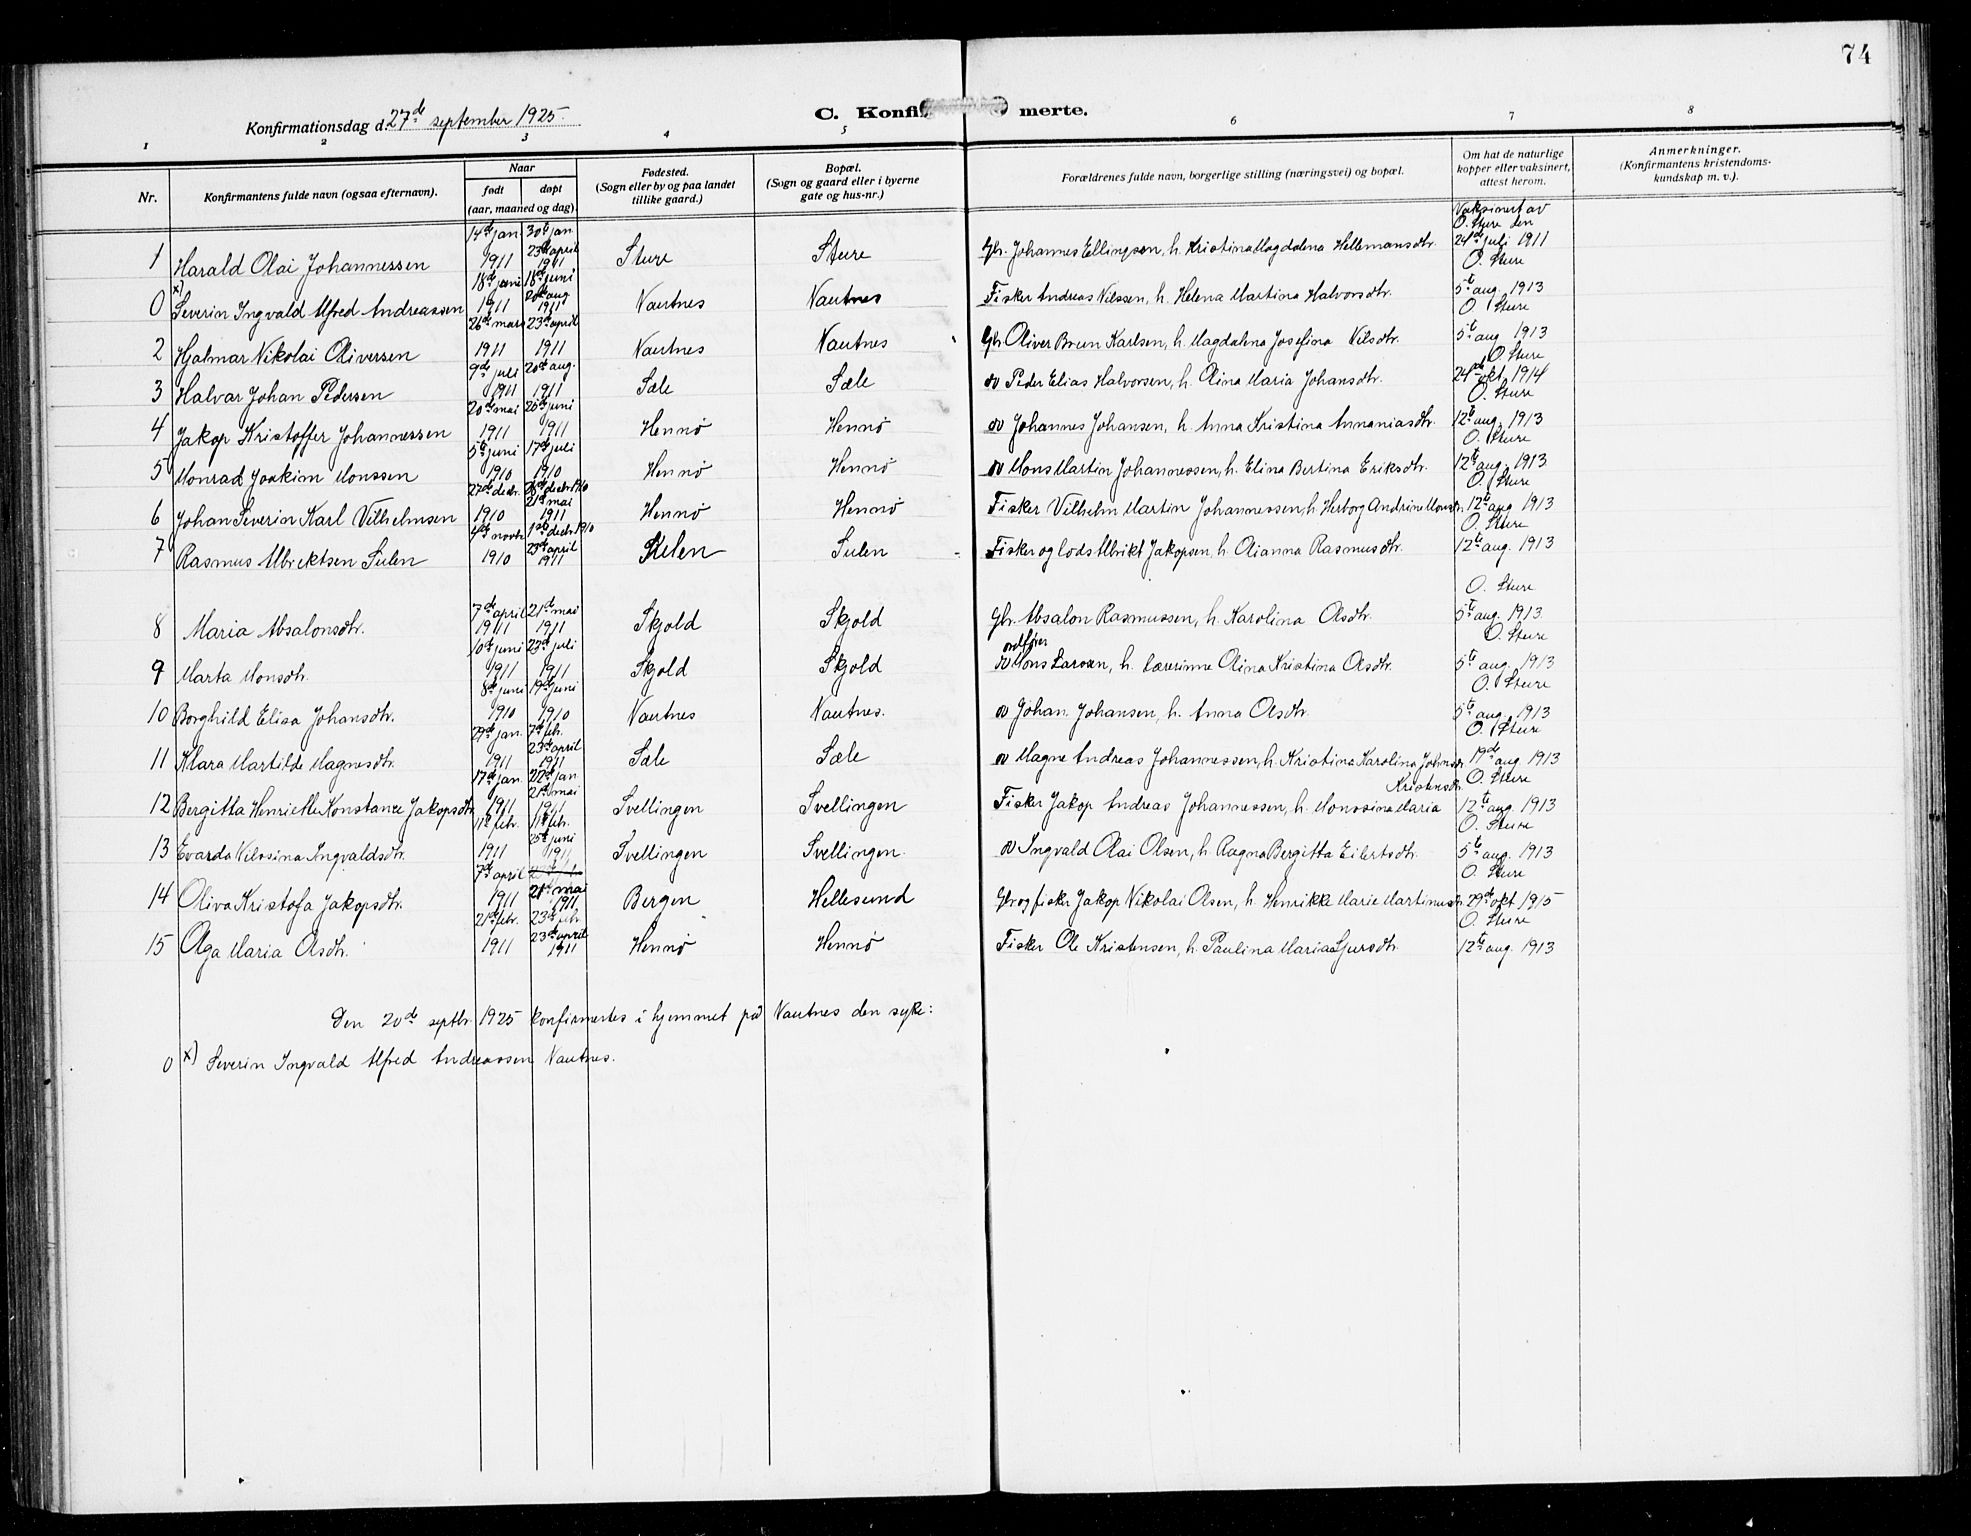 74
Konfirmationsdag d. 27de september 1925.
C. Konfi merte.
1 2 3 4 5 6 7 8
Nr. Konfirmantens fulde navn (ogsaa efternavn). Naar født døpt (aar, maaned og dag). Fødested. (Sogn eller by og paa landet tillike gaard.) Bopæl. (Sogn og gaard eller i byerne gate og hus-nr.) Forældrenes fulde navn, borgerlige stilling (næringsvei) og bopæl. Om hat de naturlige kopper eller vaksinert, attest herom. Anmerkninger. (Konfirmantens kristendoms-kundskap m. v.).
1 Harald Olai Johannessen 14de jan. 1911 30te jan 23de april 1911 Sture Sture Gbr. Johannes Ellingsen, h. Kristina Magdalena Hellemansdtr. Vaksinert av O. Sture den 24de juli 1911
0 x) Severin Ingvald Alfred Andreassen 18de juni 1911 18de juni 20de aug 1911 Nautnes Nautnes Fisker Andreas Nilssen, h. Helena Martina Halvorsdtr. O. Sture 5te aug. 1913
2 Hjalmar Nikolai Oliversen 26de mars 1911 23de april 1911 Nautnes Nautnes Gbr. Oliver Brun Karlsen, h. Magdalena Josefina Nilsdtr. O Sture 5te aug 1913
3 Halvar Johan Pedersen 9de juli 1911 20de aug. 1911 Sæle Sæle do Peder Elias Halvorsen, h. Olina Maria Johansdtr. O. Sture 24de okt. 1914
4 Jakop Kristoffer Johannessen 20de mai 1911 20de juni 1911 Hennø Hennø do Johannes Johansen, h. Anna Kristina Annaniasdtr. O. Sture 12te aug. 1913
5 Monrad Joakim Monssen 5te juni 1910 17de juli 1910 Hennø Hennø do Mons Martin Johannessen, h. Elina Bertina Eriksdtr. O. Sture 12te aug. 1913
6 Johan Severin Karl Vilhelmsen 27de decbr. 1910 decbr 1910 21de mai 1911 Hennø Hennø Fisker Vilhelm Martin Johannessen, h. Herborg Andrine Monsdtr. O. Sture 12te aug 1913
7 Rasmus Ulrektsen Sulen 4de novbr 1910 1ste decbr. 1910 23de april 1911 Sulen Sulen Fisker og lods Ulrikt Jakopsen, h. Olianna Rasmusdtr. O. Sture 12te aug. 1913
8 Maria Absalonsdtr. 7de april 1911 21de mai 1911 Skjold Skjold Gbr. Absalon Rasmussen, h. Karolina Olsdtr. O. Sture 5te aug. 1913
9 Marta Monsdtr. 10de juni 1911 23de juli 1911 Skjold Skjold ordfører do Mons Larsen, h. lærerinne Olina Kristina Olsdtr. O. Sture 5te aug. 1913
10 Borghild Elisa Johansdtr. 8de juni 1910 19de juni 1910 Nautnes Nautnes. do Johan Johansen, h. Anna Olsdtr. O. Sture 5te aug. 1913
11 Klara Martilde Magnesdtr. 29de jan. 1911 7de feb. 23de april 1911 Sæle Sæle do Magne Andreas Johannessen, h. Kristina Karolina Johnsdtr. O. Sture 19de aug 1913
12 Bergitta Henriette Konstanze Jakopsdtr. 17de jan. 1911 22de jan 21de mai 1911 Svellingen Svellingen Fisker Jakop Andreas Johannessen, h. Monssine Maria Kristensdtr. O. Sture 12te aug. 1913
13 Evarda Nilssina Ingvaldsdtr. 11te febr. 1911 11te febr. 25de juni 1911 Svellingen Svellingen. do Ingvald Olai Olsen, h. Ragna Bergitta Eilertsdtr. O. Sture 5te aug. 1913
14 Oliva Kristofa Jakopsdtr. 7de april 1911 21de mai 1911. Bergen Hellesund Gbr og fisker Jakop Nikolai Olsen, h. Henrikke Marie Martinusdtr. O. Sture 29de okt 1915
15 Olga Maria Olsdtr. 21de febr. 1911 23de febr 23de april 1911 Hennø Hennø Fisker Ole Kristensen, h. Paulina Maria Sjursdtr. O. Sture 12te aug. 1913
Den 20de septbr. 1925 konfirmertes i hjemmet på Nautnes den syke:
0 x) Severin Ingvald Alfred Andreassen Nautnes.